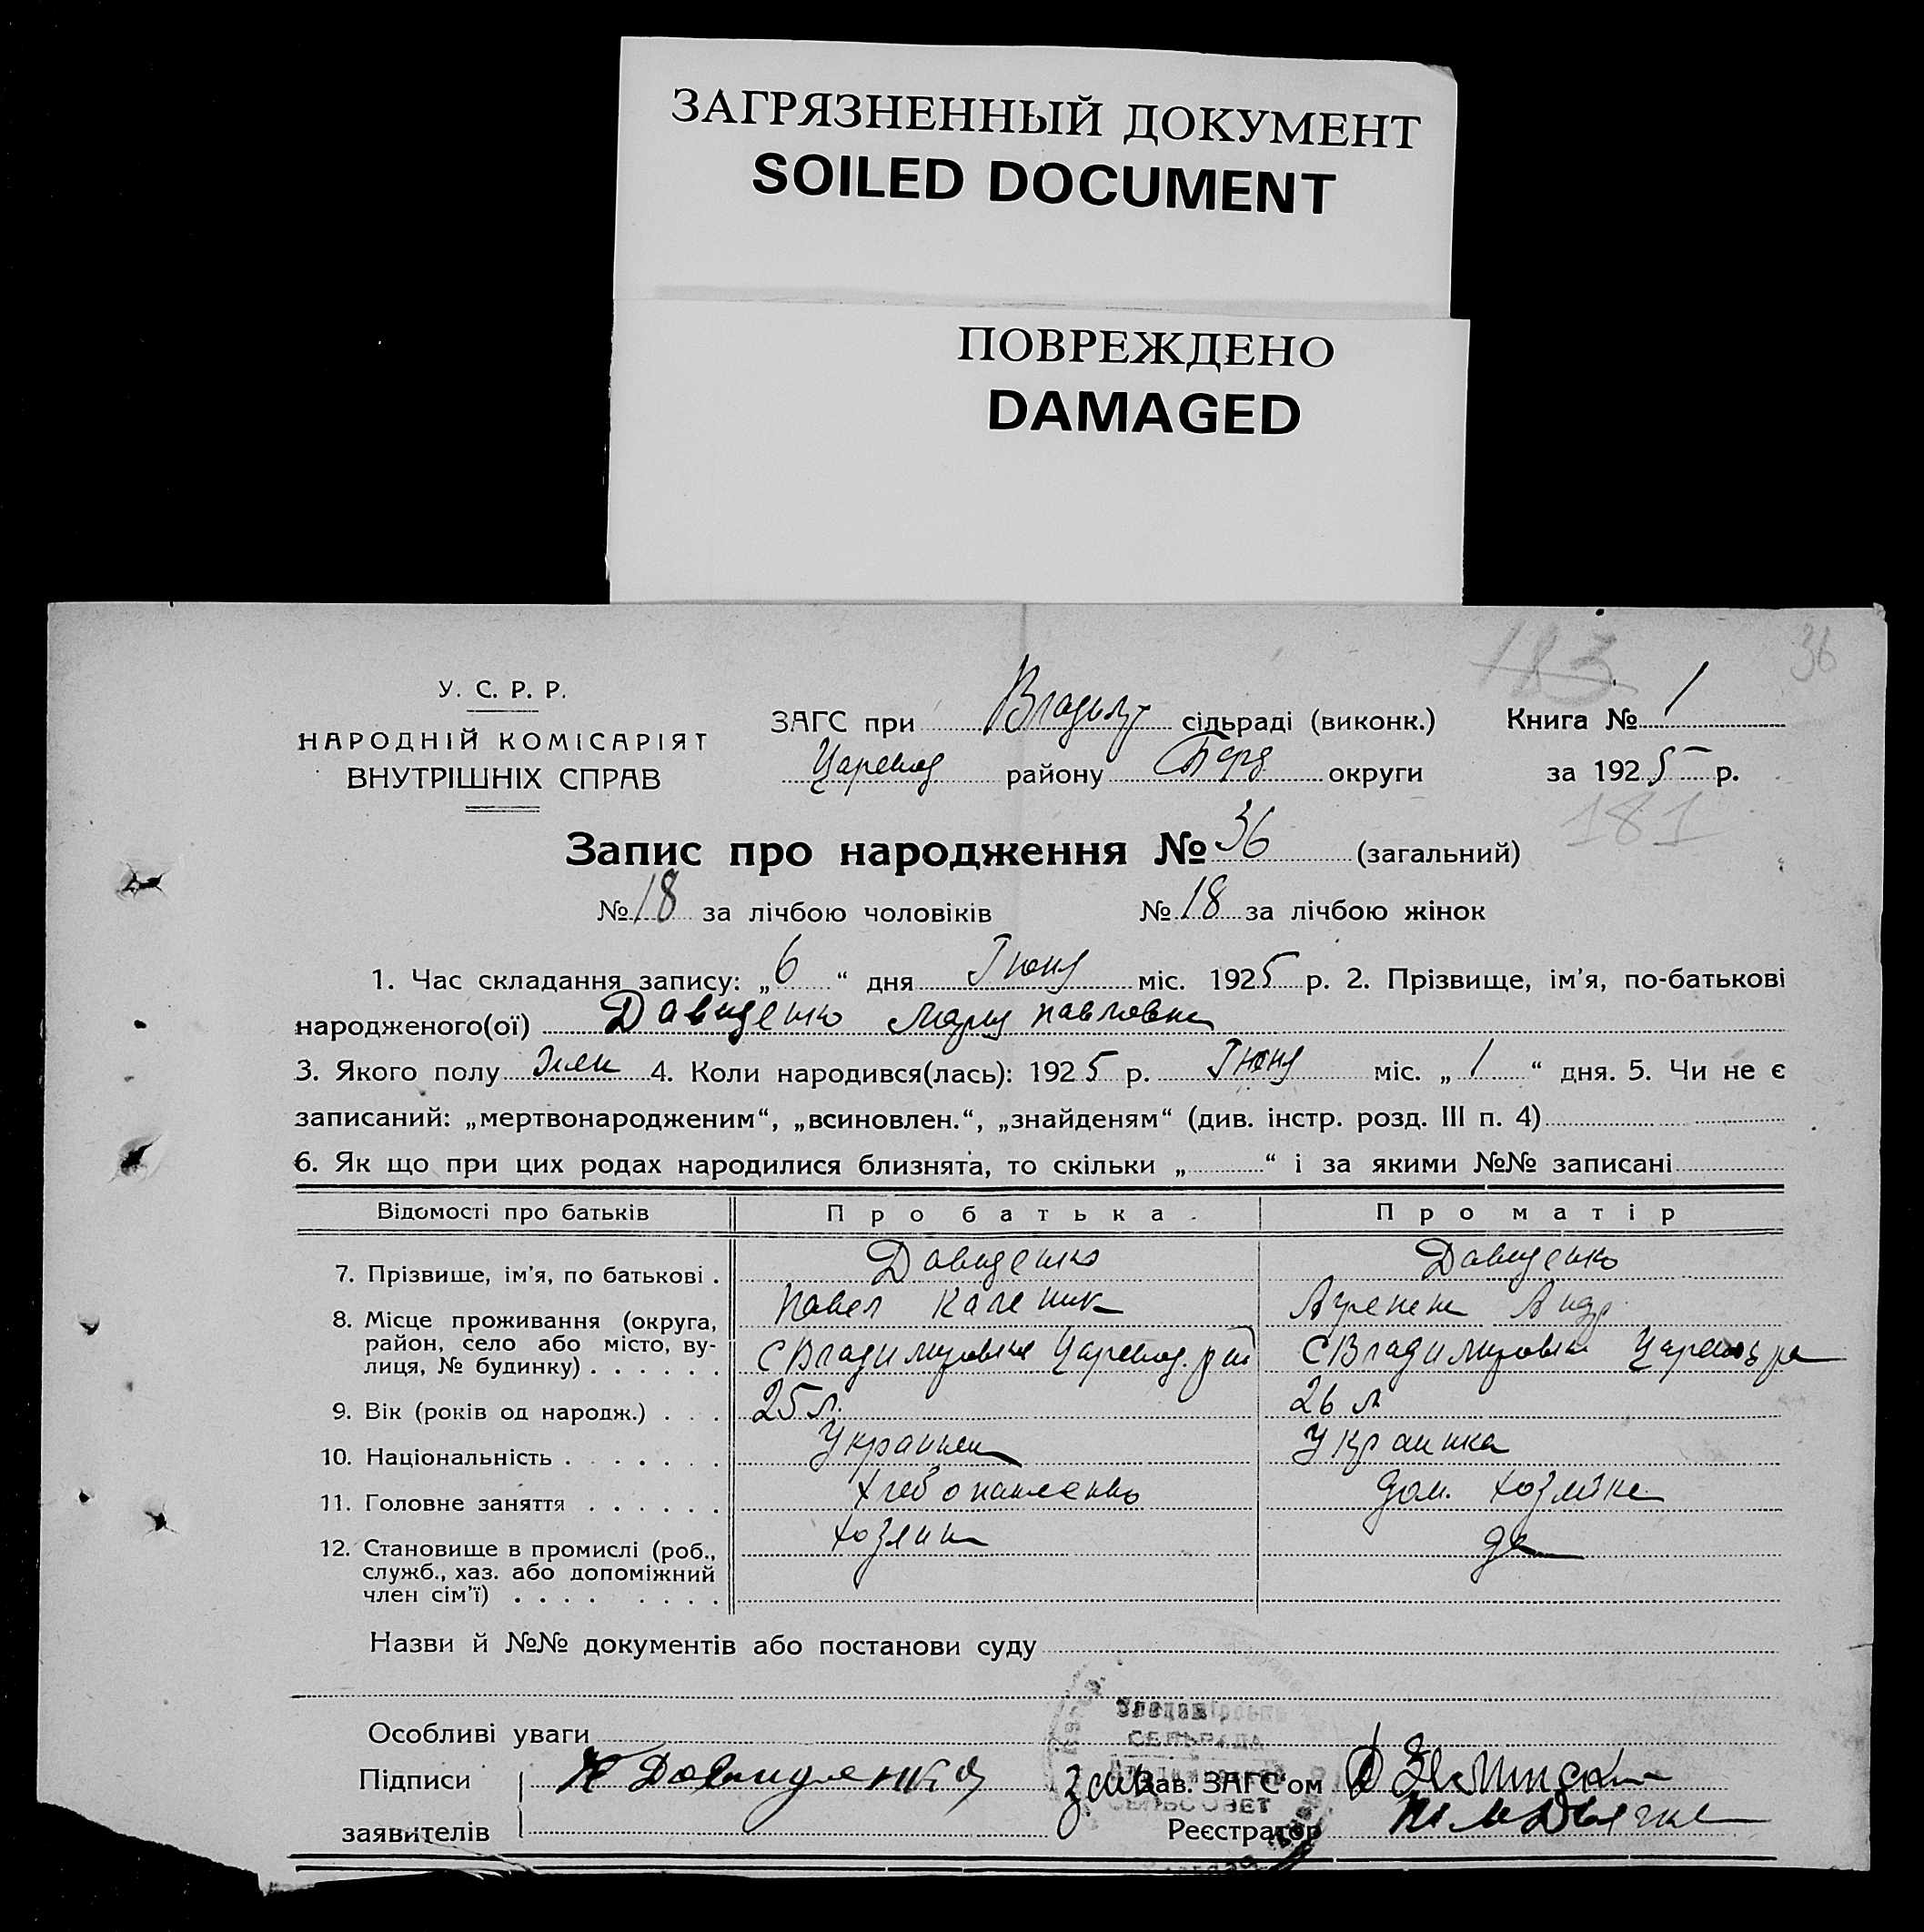 ЗАГРЯЗНЕННЫЙ ДОКУМЕНТ
SOILED DOCUMENT
ПОВРЕЖДЕНО
DAMAGED
183 36
У. С. Р. Р.
НАРОДНІЙ КОМІСАРІЯТ
ВНУТРІШНІХ СПРАВ
ЗАГС при сільраді (виконк.) Книга № 1
району округи за 1925 р.
181
Запис про народження № 36 (загальний)
№ 18 за лічбою чоловіків № 18 за лічбою жінок
1. Час складання запису: „6“ дня Іюня міс. 1925 р. 2. Прізвище, ім'я, по-батькові
народженого(ої) Давиденко Мария Павловна
3. Якого полу жен 4. Коли народився(лась): 1925 р. Іюня міс. „1“ дня. 5. Чи не є
записаний: „мертвонародженим“, „всиновлен.“, „знайденям“ (див. інстр. розд. III п. 4)
6. Як що при цих родах народилися близнята, то скільки „ “ і за якими №№ записані
Відомості про батьків Про батька Про матір
7. Прізвище, ім'я, по батькові . Давиденко Давиденко
Павел Каленик Андр
8. Місце проживання (округа,
район, село або місто, ву-
лиця, № будинку) . . . . . . С Владимировка С Владимировка
9. Вік (років од народж.) . . . 25 л. 26 л
10. Національність . . . . . . . Украинец Украинка
11. Головне заняття . . . . . . Хлебопашество дом. хозяйка
12. Становище в промислі (роб.,
служб., хаз. або допоміжний
член сім'ї) . . . . . . . . хозяин
Назви й №№ документів або постанови суду
Особливі уваги
Підписи Давиденко Зав. ЗАГС'ом
заявителів Реєстратор